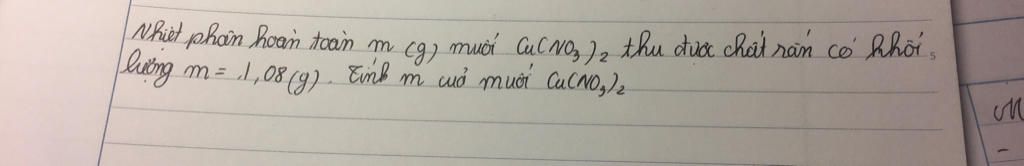 Nhiệt phân hoàn toàn m (g) muối Cu(NO3)2 thu được chất rắn có khối
lượng m = 1,08 (g). Tính m cuả muối Cu(NO3)2